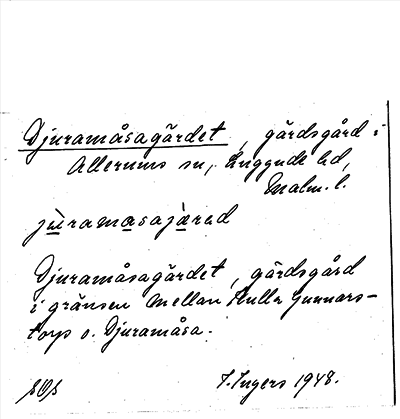 Djuramåsagärdet, gärdsgård i
Allerums sn, Luggude hd,
Malm. l.
jùramasajærad
Djuramåsagärdet, gärdsgård
i gränsen mellan Hulla Gunnars-
torp o. Djuramåsa.
I. Ingers 1948.